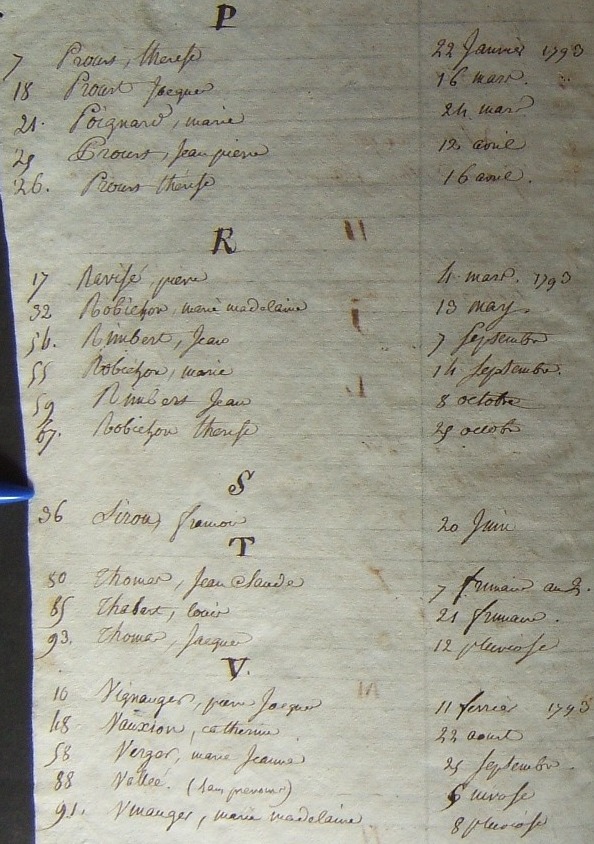 P
7 Proust, therese 22 Janvier 1793
18 Proust Jacques 16 mars.
21. Poignard, marie 24 mars
25 Proust, Jean pierre 12 avril
26. Proust thérese 16 avril.
R
17 Ravisé, pierre 4 mars. 1793
32 Robichon, marie madelaine 13 may.
Rimbert, Jean 7 Septembre
55 Robichon, marie 14 Septembre.
59 Rimbert Jean 8 octobre
67. Robichon therese 29 octobr
S
36 Sirou, 20 Juin
T
80 Thomas, Jean Claude 7 frimaire an 2.
85 Thabart, louis 21 frimaire.
93. Thomas, Jacques 12 pluviose
V.
10 Vignauger, pierre Jacques 11 fevrier 1793
48 Vauxion, catherine 22 aoust
58 Verger, marie Jeanne 25 septembre.
88 Vallée. (sans prenoms) 6 nivose
91. Vinauger, marie madelaine. 8 pluviose